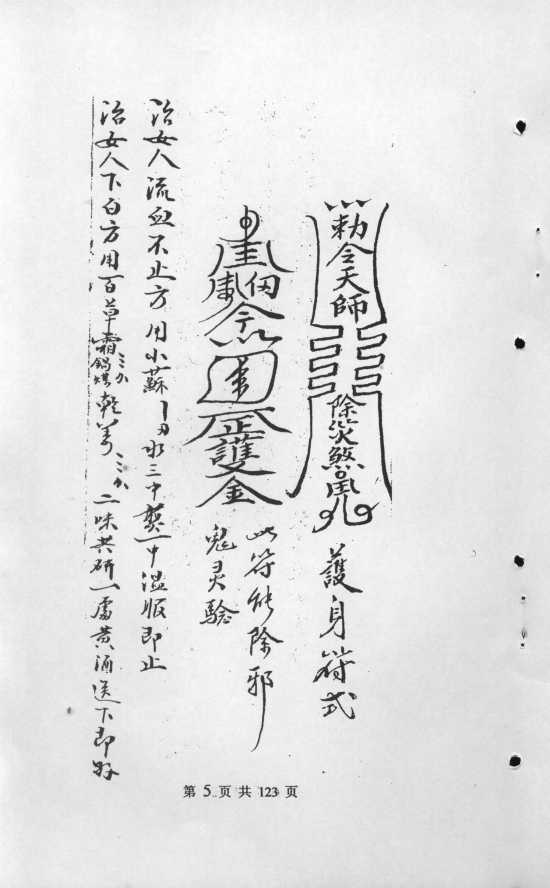 勅令天師
除災煞鬼
護身符式
正護
金
此符能除邪
鬼灵驗
治女人流血不止方用小蘇 水三中 一中温服即止
治女人下白方用百草霜鍋煤三分乾姜三分二味共研一處黄酒送下即好
第 5 页 共 123 页